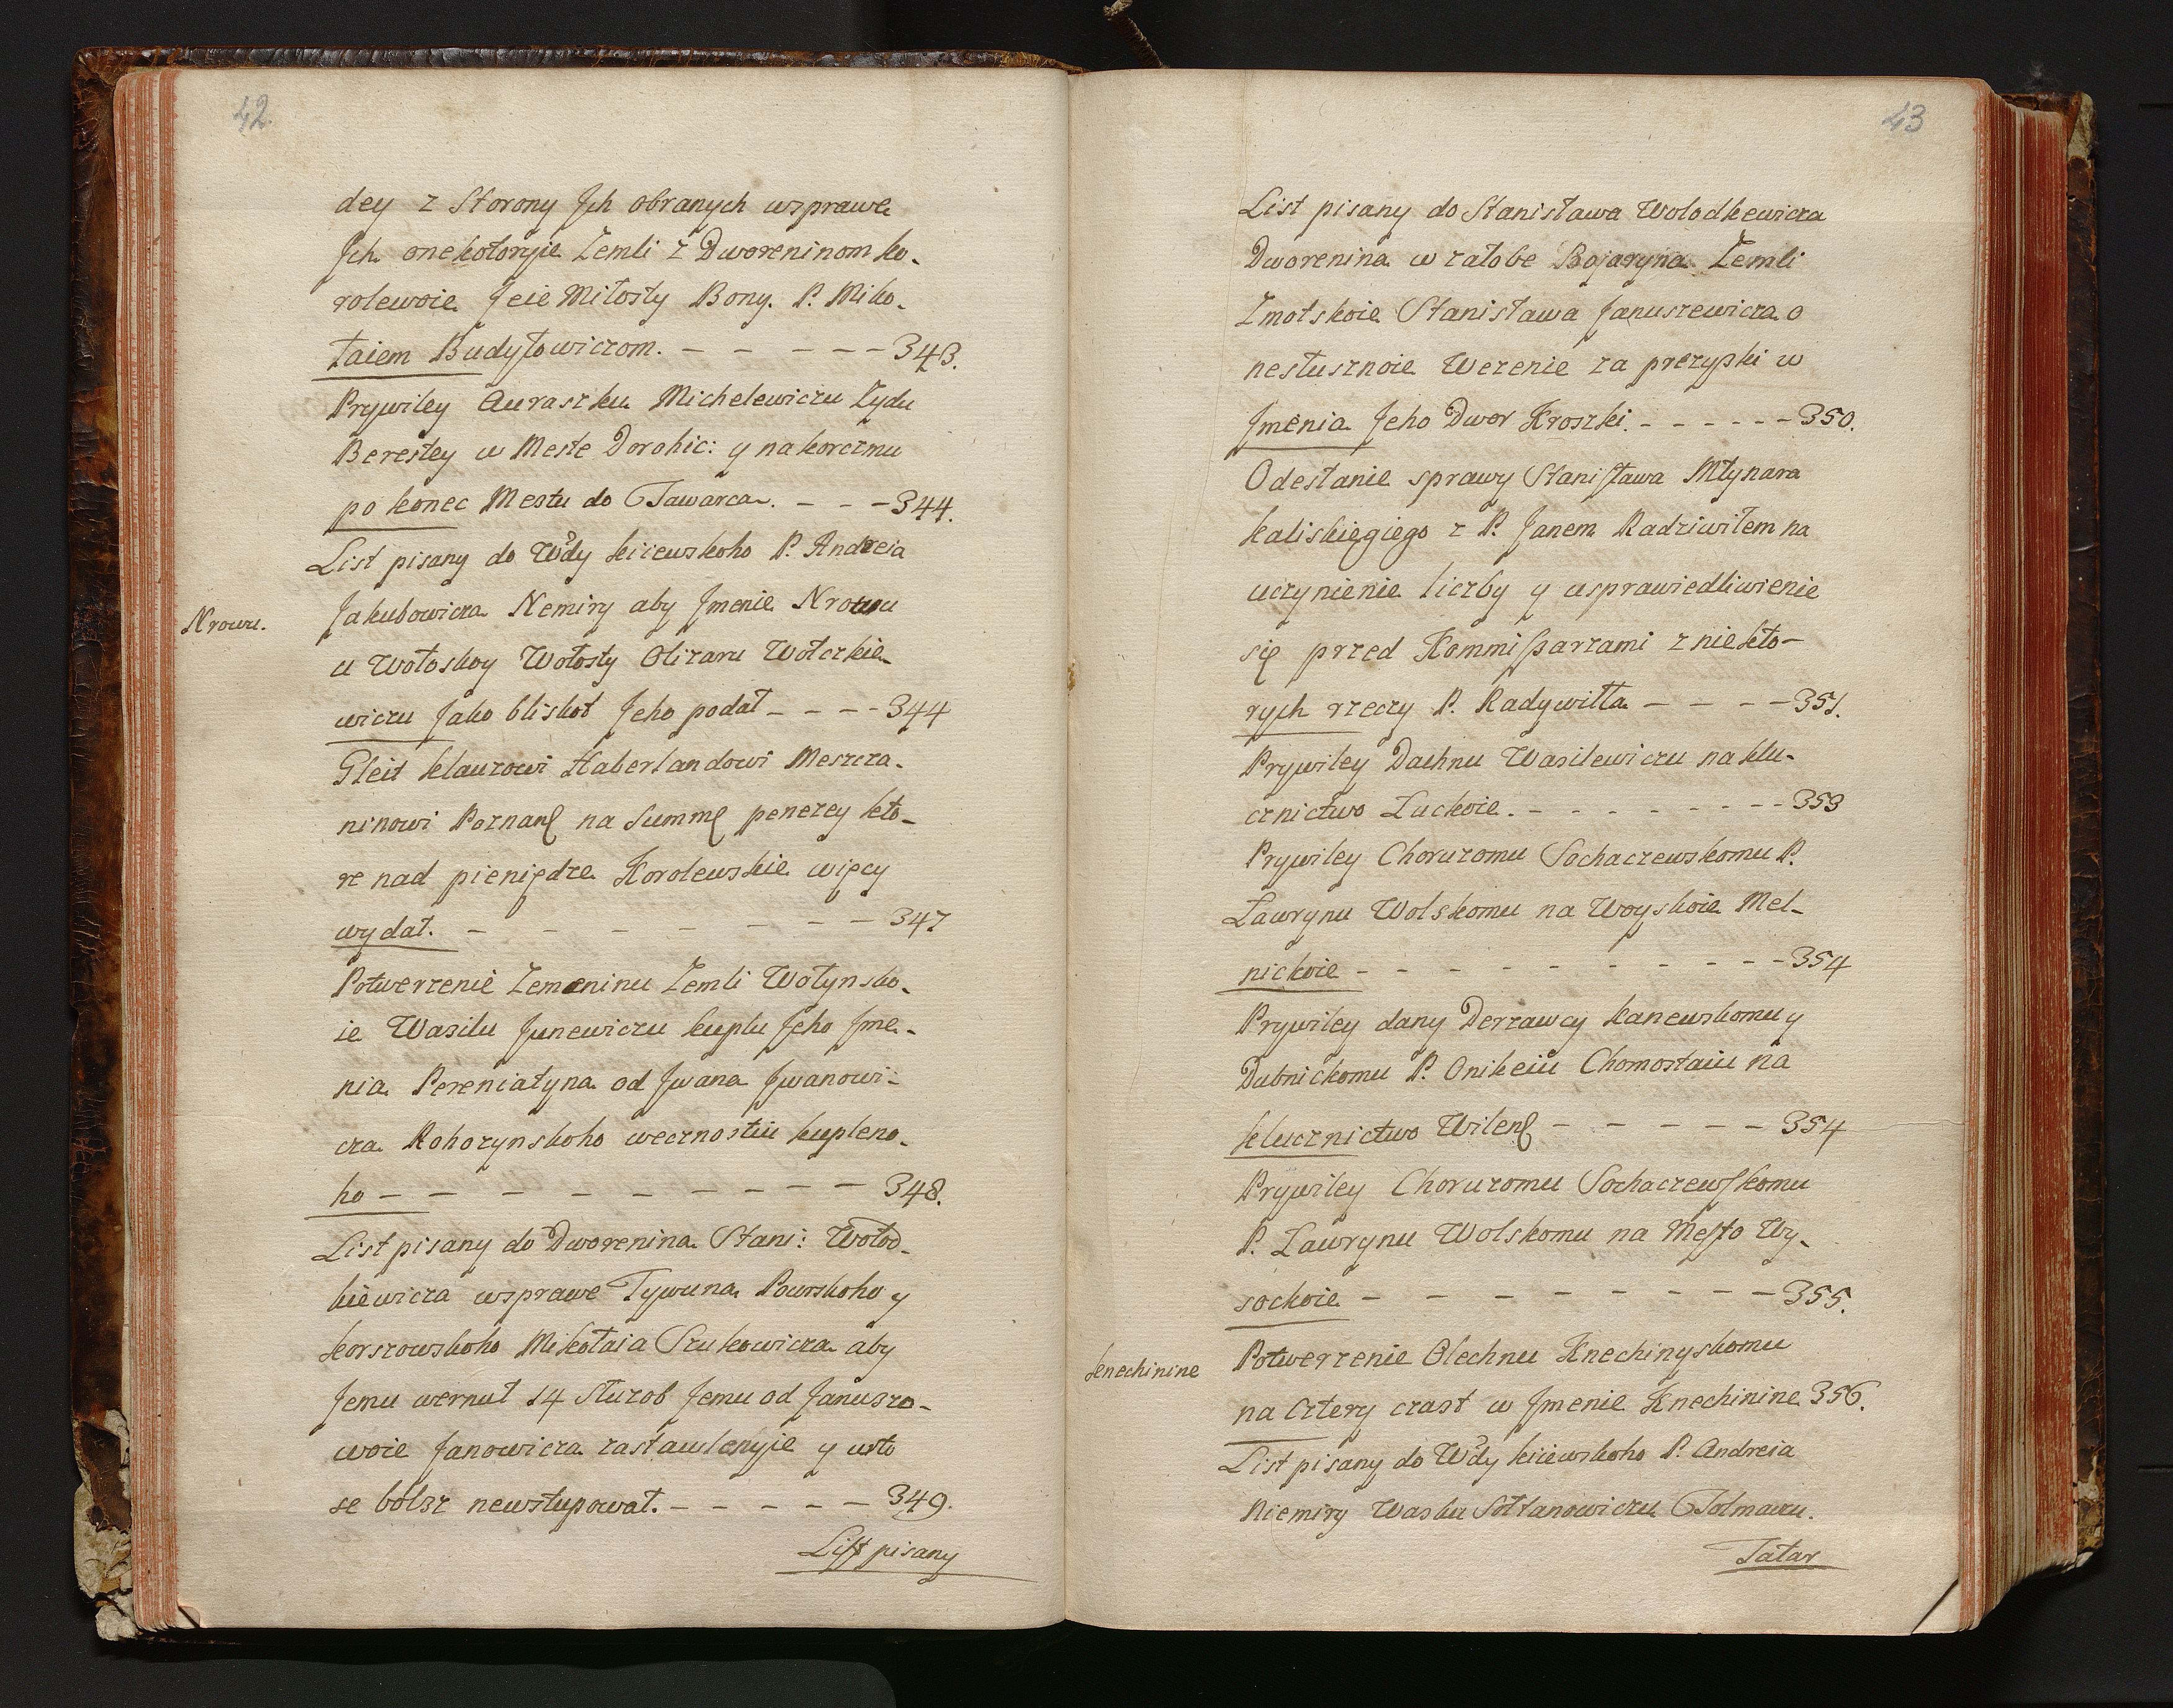 42
dey z Storony Jch obranych wsprawe
Jch onekotoryie Zemli z Dworeninom ko-
rolewoie Jeie Miłosty Bony. P. Miko-
łaiem Budyłowiczom. - - - - - 343.
Prywiley Auraszku Michelewiczu Zydu
Berestey w Meste Dorohic: y na korczmu
po konec Mestu do Tawarca. - - - 344.
List pisany do Wdy kiiewskoho P. Andreia
Nrowu.
Jakubowicza Nemiry aby Jmenie Nrowu
u Wołoskoy Wołosty Olizaru Wołczkie-
wiczu Jako bliskot Jeho podał - - - - 344
Gleit klauzowi Haberlandowi Meszcza-
ninowi Poznan na Summę penezey kto-
re nad pieniędze Korolewskie więcy
wydał. - - - - - - - - 347
Potwerzenie Zemeninu Zemli Wołynsko-
ie Wasilu Junewiczu kuplu Jeho Jme-
nia Pereniatyna od Jwana Jwanowi-
cza Rohozynskoho wecznostiu kupleno-
ho - - - - - - - - - - 348.
List pisany do Dworenina Stani: Wołod-
kiewicza wsprawe Tywuna Powrskoho y
korszowskoho Mikołaia Szukowicza aby
Jemu wernuł 14 Służob Jemu od Januszo-
woie Janowicza zastawlenyie y wto
se bolsz newstupował. - - - - - 349.
List pisany
43
List pisany do Stanisława Wolodkewicza
Dworenina w załobe Bojaryna Zemli
Zmotskoie Stanisława Januszewicza o
nesłusznoie Wezenie za prezyski w
Jmenia Jeho Dwor Kroszki. - - - - - - 350.
Odesłanie sprawy Stanisława Młynara
kaliskiegiego z P. Janem Radziwiłem na
uczynienie liczby y usprawiedliwienie
się przed Kommissarzami z niekto-
rych rzeczy P. Radywiłła - - - - 351.
Prywiley Dachnu Wasilewiczu na klu-
cznictwo Łuckoie. - - - - - - - - 353
Prywiley Choruzomu Sochaczewskomu P.
Ławrynu Wolskomu na Woyskoie Mel-
nickoie - - - - - - - - - - 354
Prywiley dany Derzawcy kanewskomu y
Dubnickomu P. Onikeiu Chomostaiu na
klucznictwo Wilen - - - - - 354
Prywiley Choruzomu Sochaczewskomu
P. Ławrynu Wolskomu na Mesto Wy-
sockoie - - - - - - - - - 355.
knechinine
Potwerzenie Olechnu Knechinyskomu
na cztery czast w Jmenie Knechinine 356.
List pisany do Wdy kiiewskoho P. Andreia
Niemiry Wasku Sołtanowiczu Tolmaczu.
Tatar